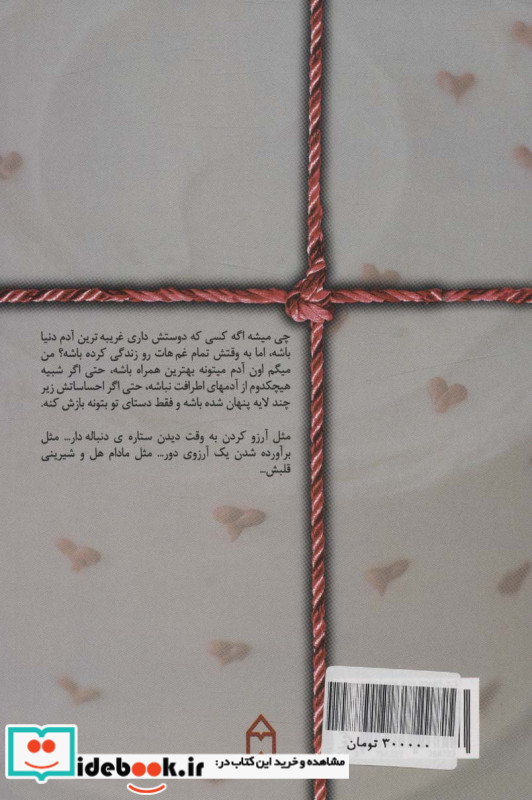 چی میشه اگه کسی که دوستش داری غریبه ترین آدم دنیا
باشه، اما به وقتش تمام غم هات رو زندگی کرده باشه؟ من
میگم اون آدم میتونه بهترین همراه باشه، حتی اگر شبیه
هیچکدوم از آدمهای اطرافت نباشه، حتی اگر احساساتش زیر
چند لایه پنهان شده باشه و فقط دستای تو بتونه بازش کنه.
مثل آرزو کردن به وقت دیدن ستاره ی دنباله دار... مثل
برآورده شدن یک آرزوی دور... مثل مادام هل و شیرینی
قلبش...
۳۰۰۰۰۰ تومان
idebook.ir
مشاهده و خرید این کتاب در: